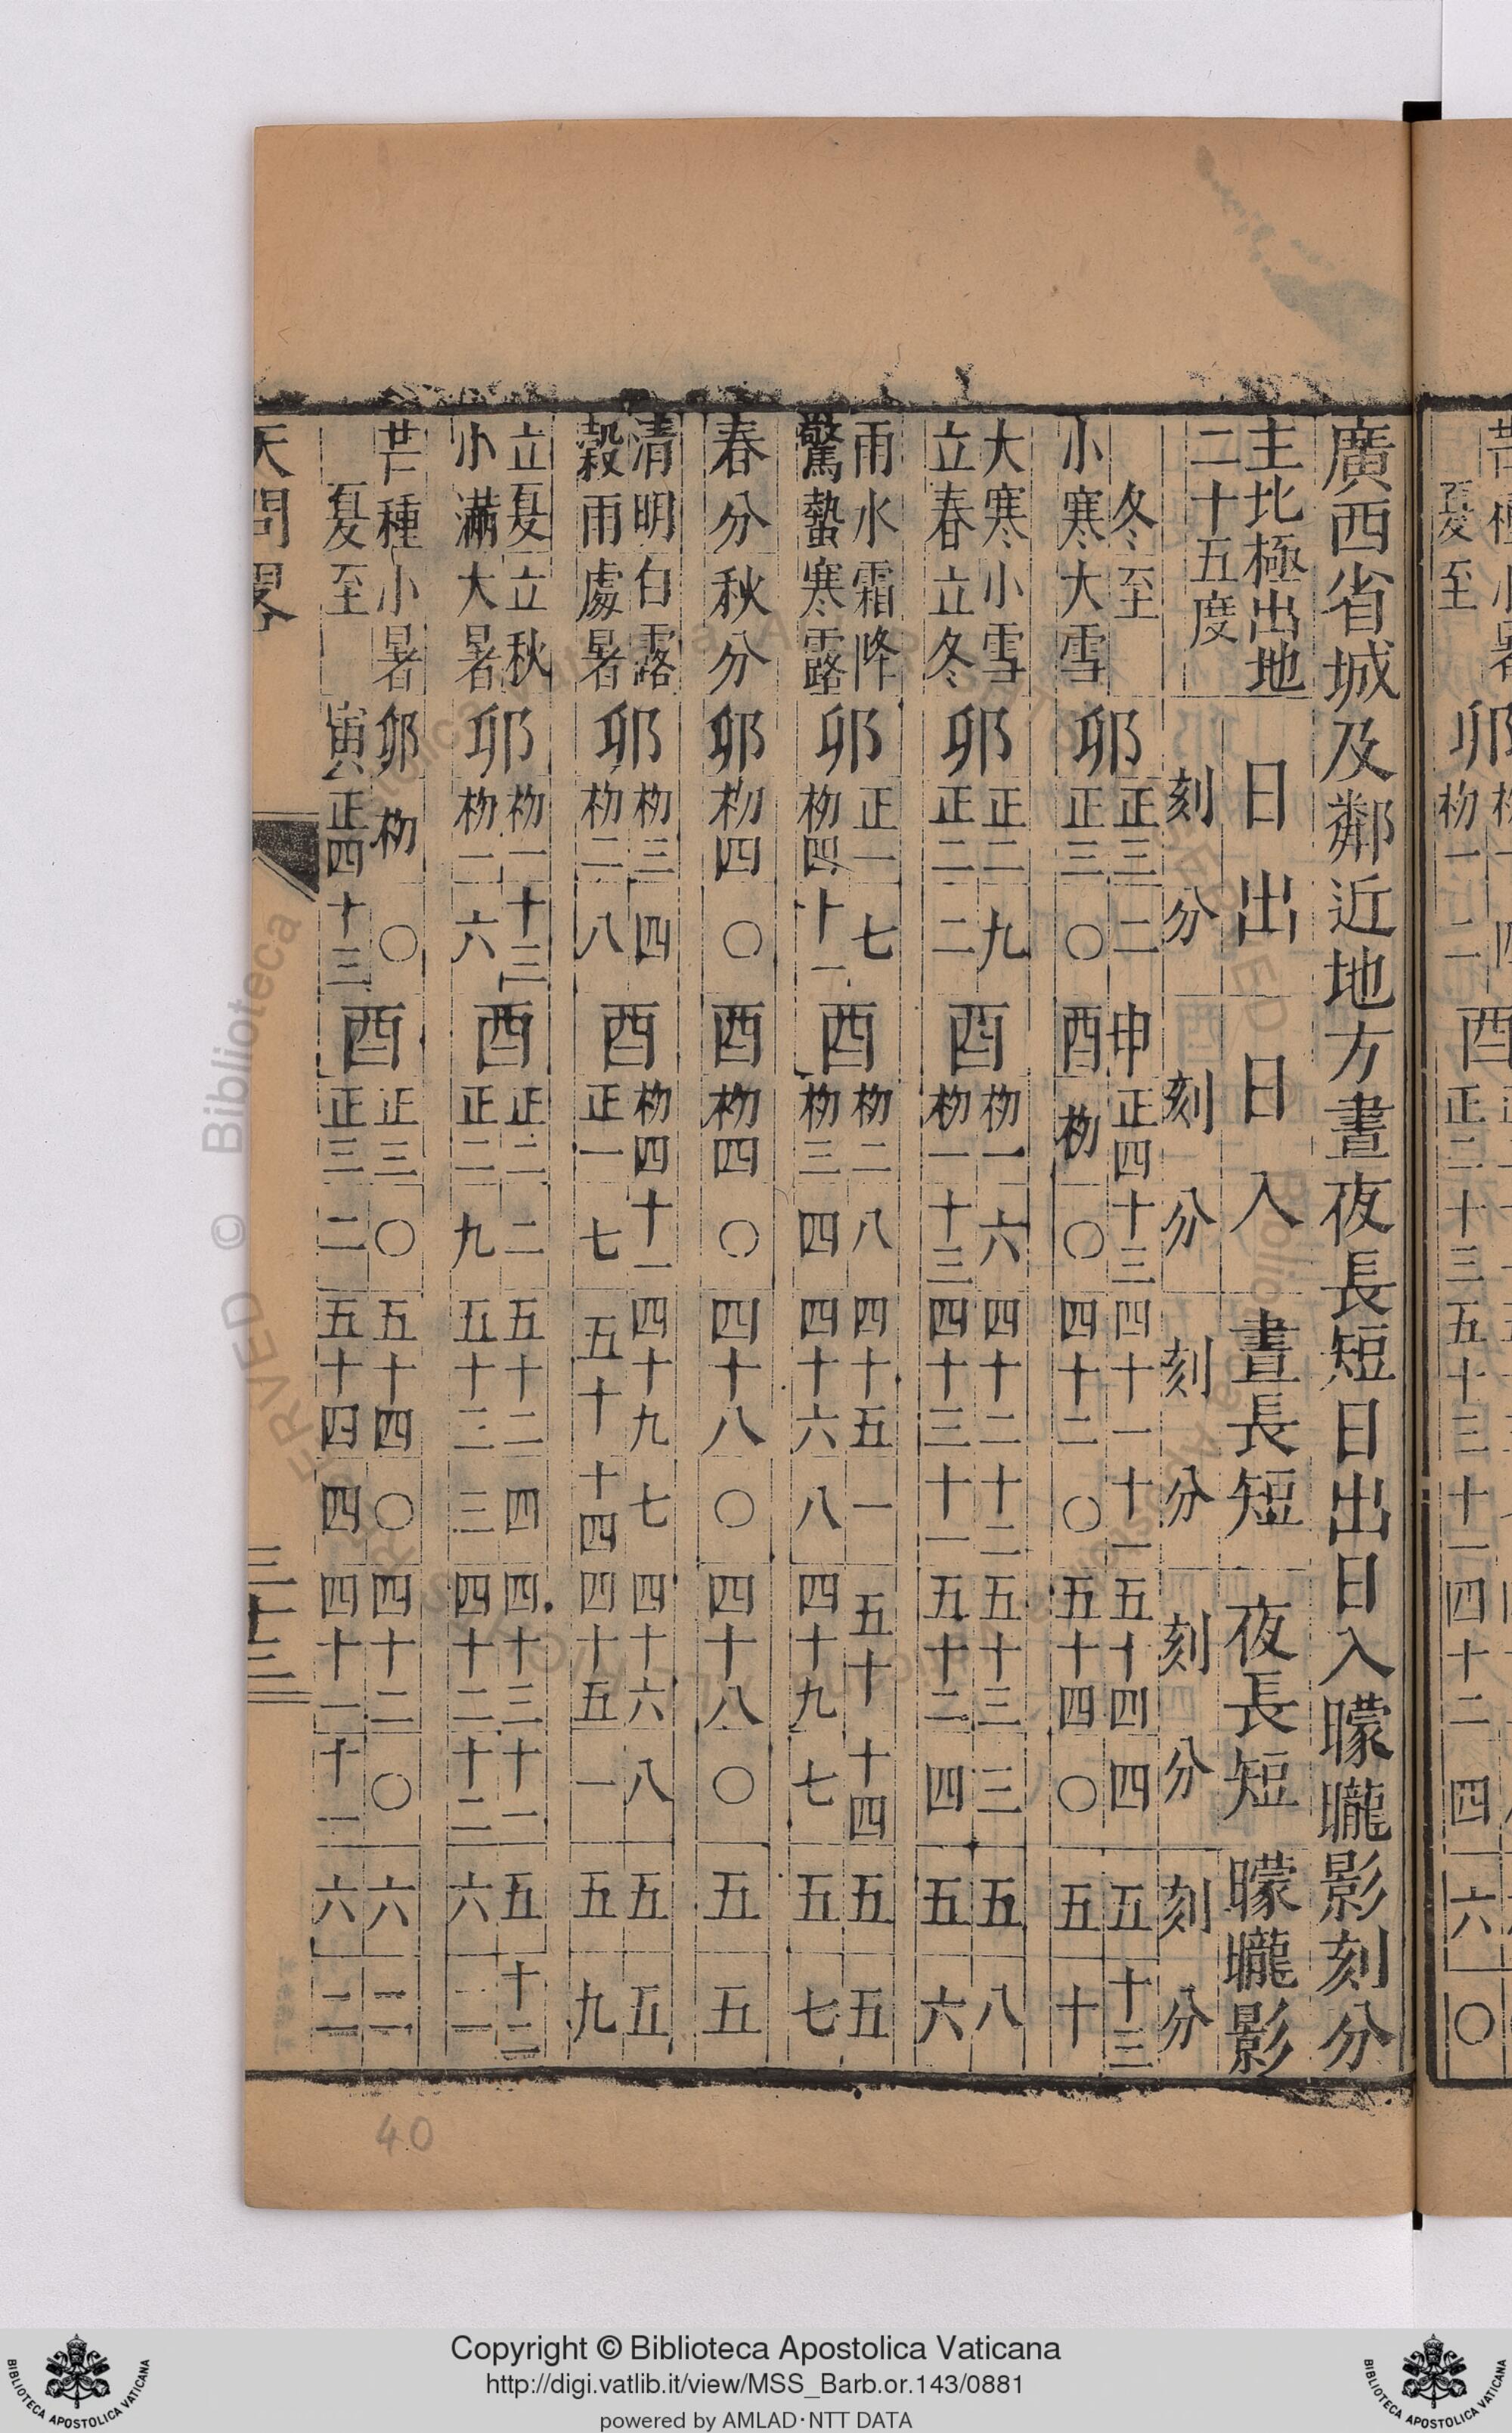 夏至卯初一二酉正二十三五十三十一四十二四六〇
廣西省城及鄰近地方晝夜長短日出日入曚曨影刻分
主北極出地
二十五度
日出日入晝長短夜長短曚曨影
刻分刻分刻分刻分刻分
冬至卯正三二申正四十三四十一十一五十四四五十三
小寒大雪正三〇酉初〇四十二〇五十四〇五十
大寒小雪卯正二九酉初一六四十二十二五十三三五八
立春立冬正二二初一十三四十三十一五十二四五六
雨水霜降卯正一七酉初二八四十五一五十十四五五
驚蟄寒露初四十一初三四四十六八四十九七五七
春分秋分卯初四〇酉初四〇四十八〇四十八〇五五
清明白露卯初三四酉初四十一四十九七四十六八五五
穀雨處暑初二八正一七五十十四四十五一五九
立夏立秋卯初一十三酉正二二五十二四四十三十一五十二
小滿大暑初一六正二九五十三三四十二十二六二
芒種小暑卯初〇酉正三〇五十四〇四十二〇六二
夏至寅正四十三正三二五十四四四十一十一六二
天問略
三十三
40
Copyright © Biblioteca Apostolica Vaticana
http://digi.vatlib.it/view/MSS_Barb.or.143/0881
powered by AMLAD·NTT DATA